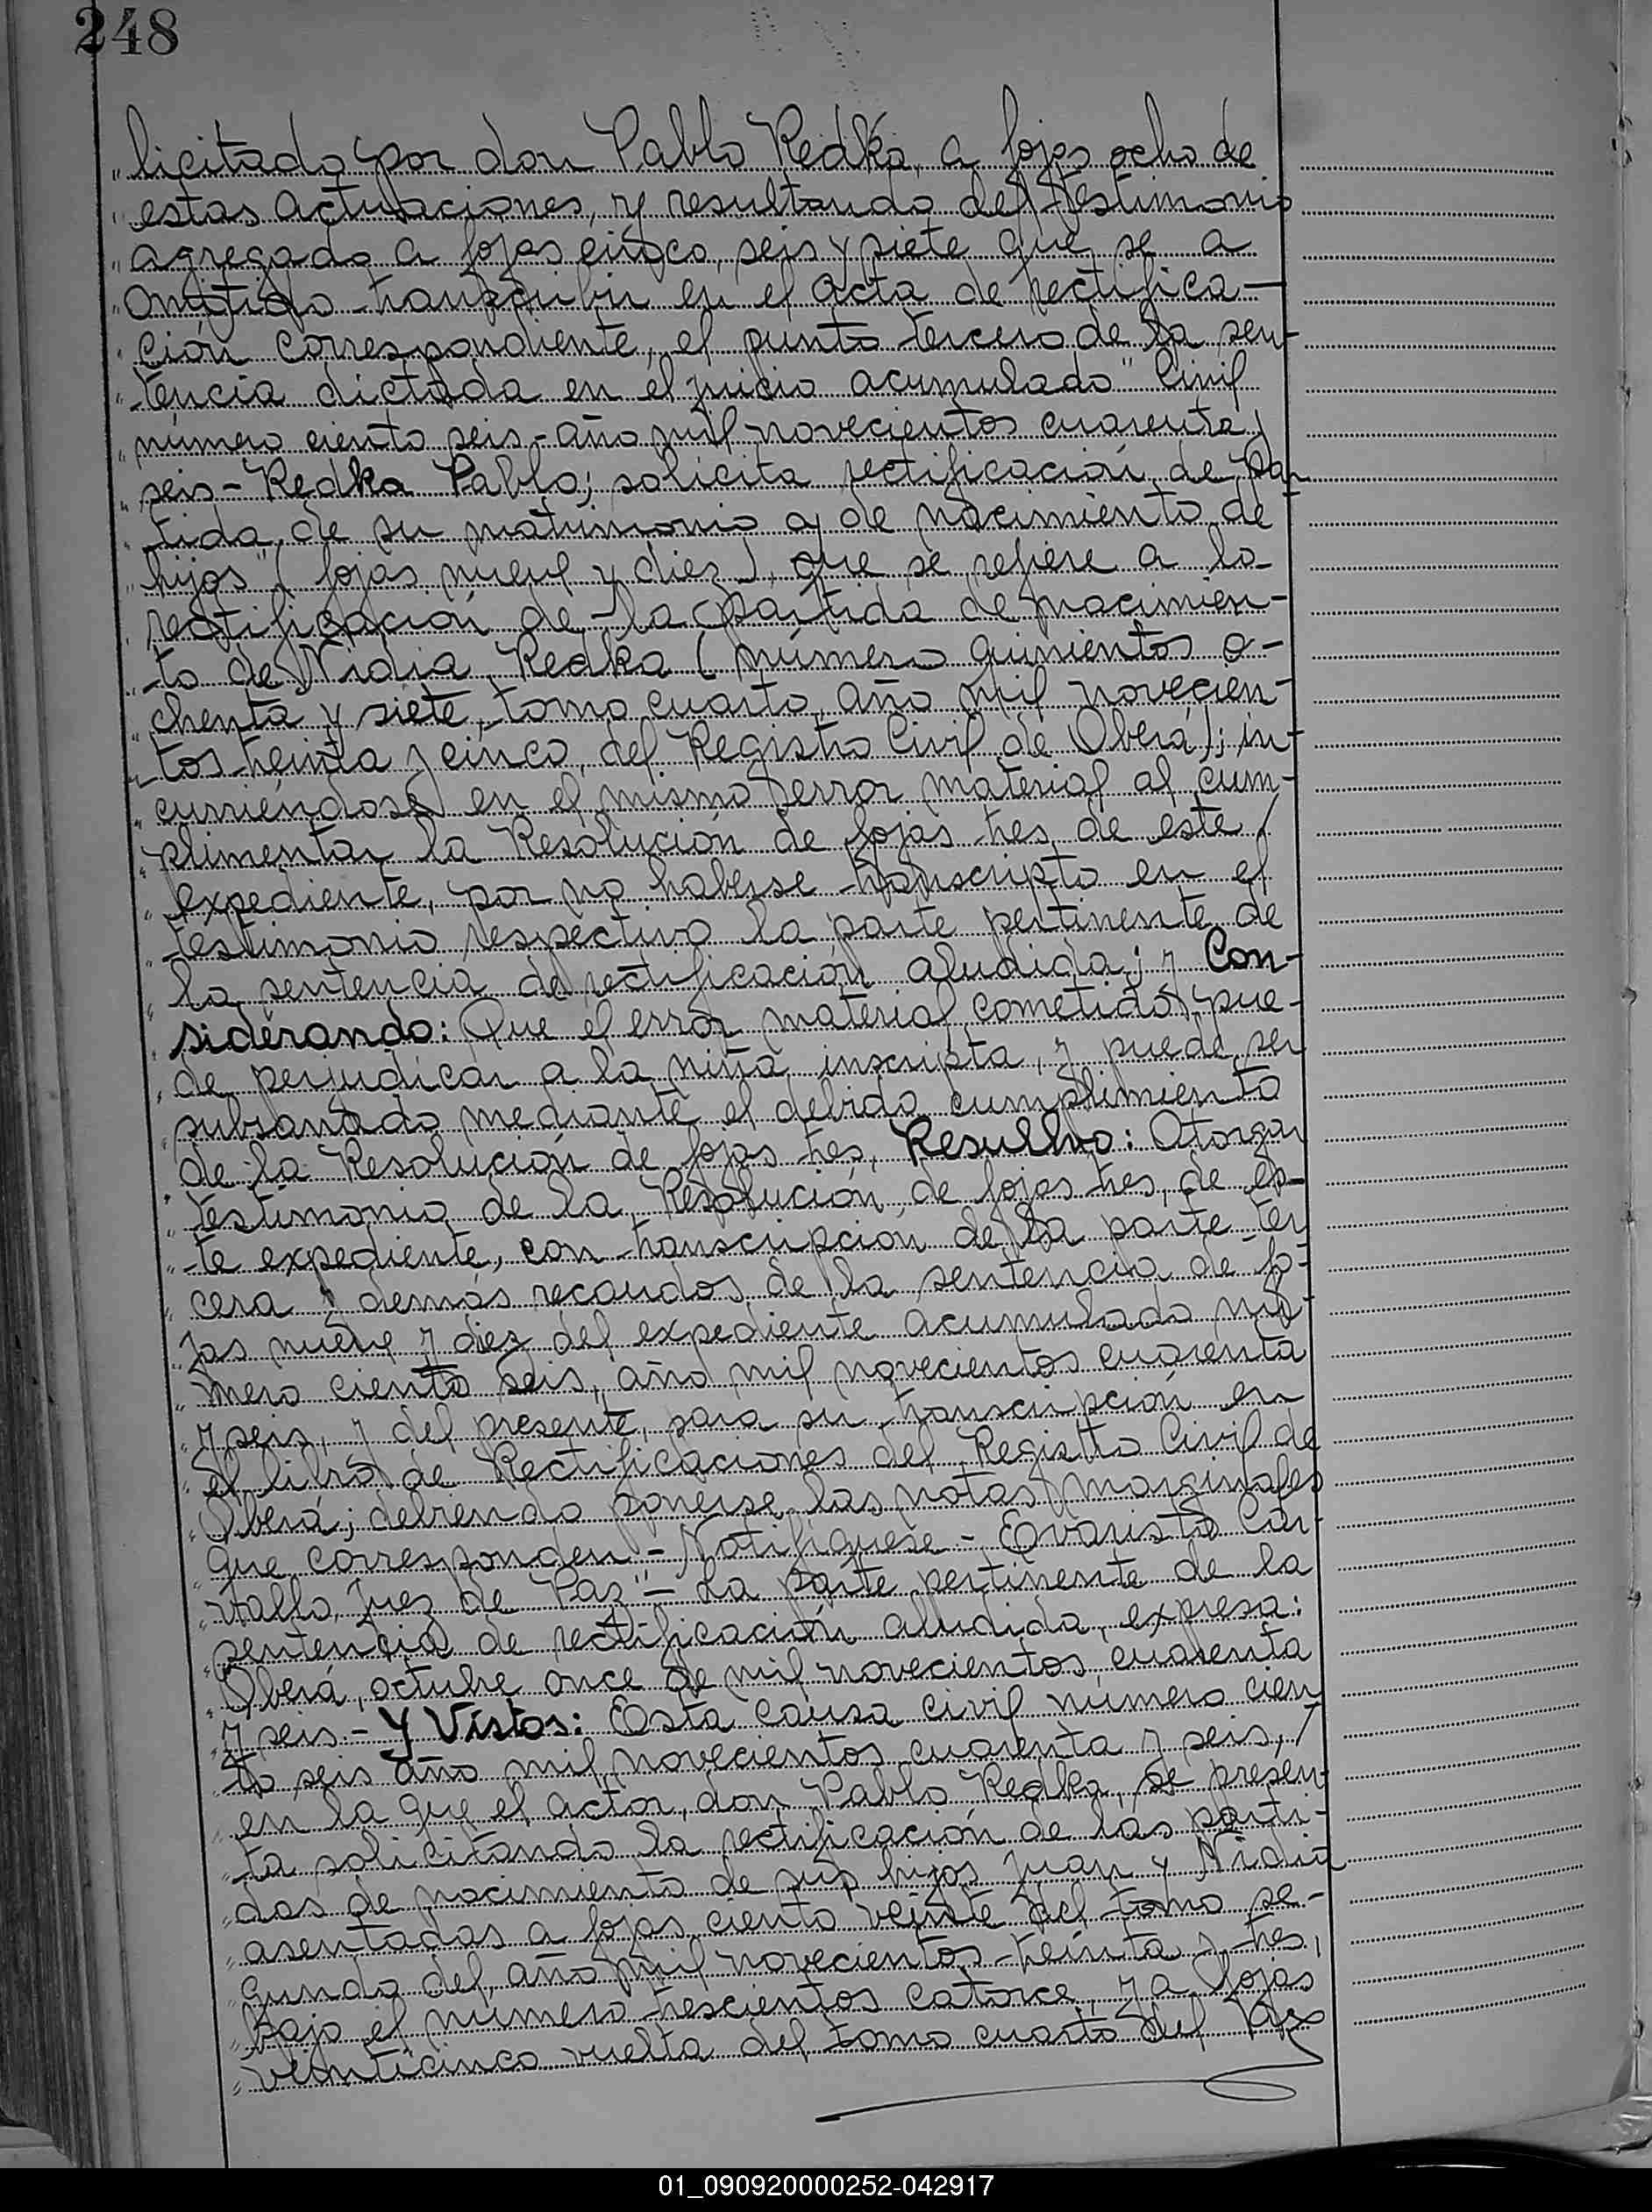 248
"licitado por don Pablo Redka, a fojas ocho de
"estas actuaciones, y resultando del testimonio
"agregado a fojas cinco, seis y siete que se a
"omitido transcribir en el acta de rectifica-
"ción correspondiente, el punto tercero de la sen-
"tencia dictada en el juicio acumulado "Civil
"número ciento seis - año mil novecientos cuarenta y
"seis - Redka Pablo; solicita rectificación de Par
"tida, de su matrimonio y de nacimiento de
"hijos" (fojas nueve y diez), que se refiere a la
"rectificación de la partida de nacimien-
"to de Nidia Redka (número quinientos o-
"chenta y siete, tomo cuarto, año mil novecien-
"tos treinta y cinco, del Registro Civil de Oberá); in-
"curriéndose en el mismo error material al cum-
"plimentar la Resolución de fojas tres de este /
"expediente, por no haberse transcripto en el
"testimonio respectivo la parte pertinente de
"la sentencia de rectificación aludida; y Con-
"siderando: Que el error material cometido pue-
"de perjudicar a la niña inscripta, y puede ser
"subsanado mediante el debido cumplimiento
"de la Resolución de fojas tres, Resuelvo: Otorgar
"testimonio de la Resolución de fojas tres, de es-
"te expediente, con transcripción de la parte ter
"cera y demás recaudos de la sentencia de fo-
"jas nueve y diez del expediente acumulado nú-
"mero ciento seis, año mil novecientos cuarenta
"y seis, y del presente, para su transcripción en
"el libro de Rectificaciones del Registro Civil de
"Oberá; debiendo ponerse las notas marginales
"que corresponden - Notifíquese - Evaristo Car-
"vallo, Juez de Paz" - La parte pertinente de la
"sentencia de rectificación aludida, expresa:
"Oberá, octubre once de mil novecientos cuarenta
"y seis. - Y Vistos: Esta causa civil número cien
"to seis año mil novecientos cuarenta y seis, /
"en la que el actor, don Pablo Redka, se presen-
"ta solicitando la rectificación de las parti-
"das de nacimiento de sus hijos Juan y Nidia
"asentadas a fojas ciento veinte del tomo se-
"gundo del año mil novecientos treinta y tres,
"bajo el número trescientos catorce, y a fojas
"veinticinco vuelta del tomo cuarto del
01_090920000252-042917